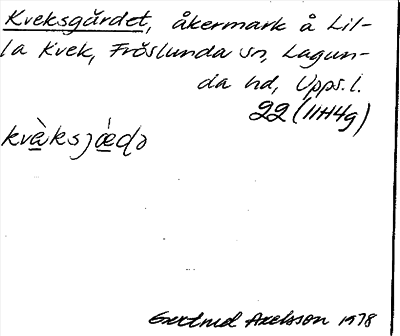 Kveksgärdet, åkermark å Lil-
la Kvek, Fröslunda sn, Lagun-
da hd, Upps. l.
22 (11H4g)
kvὰksjǽɖə
Gertrud Axelsson 1978